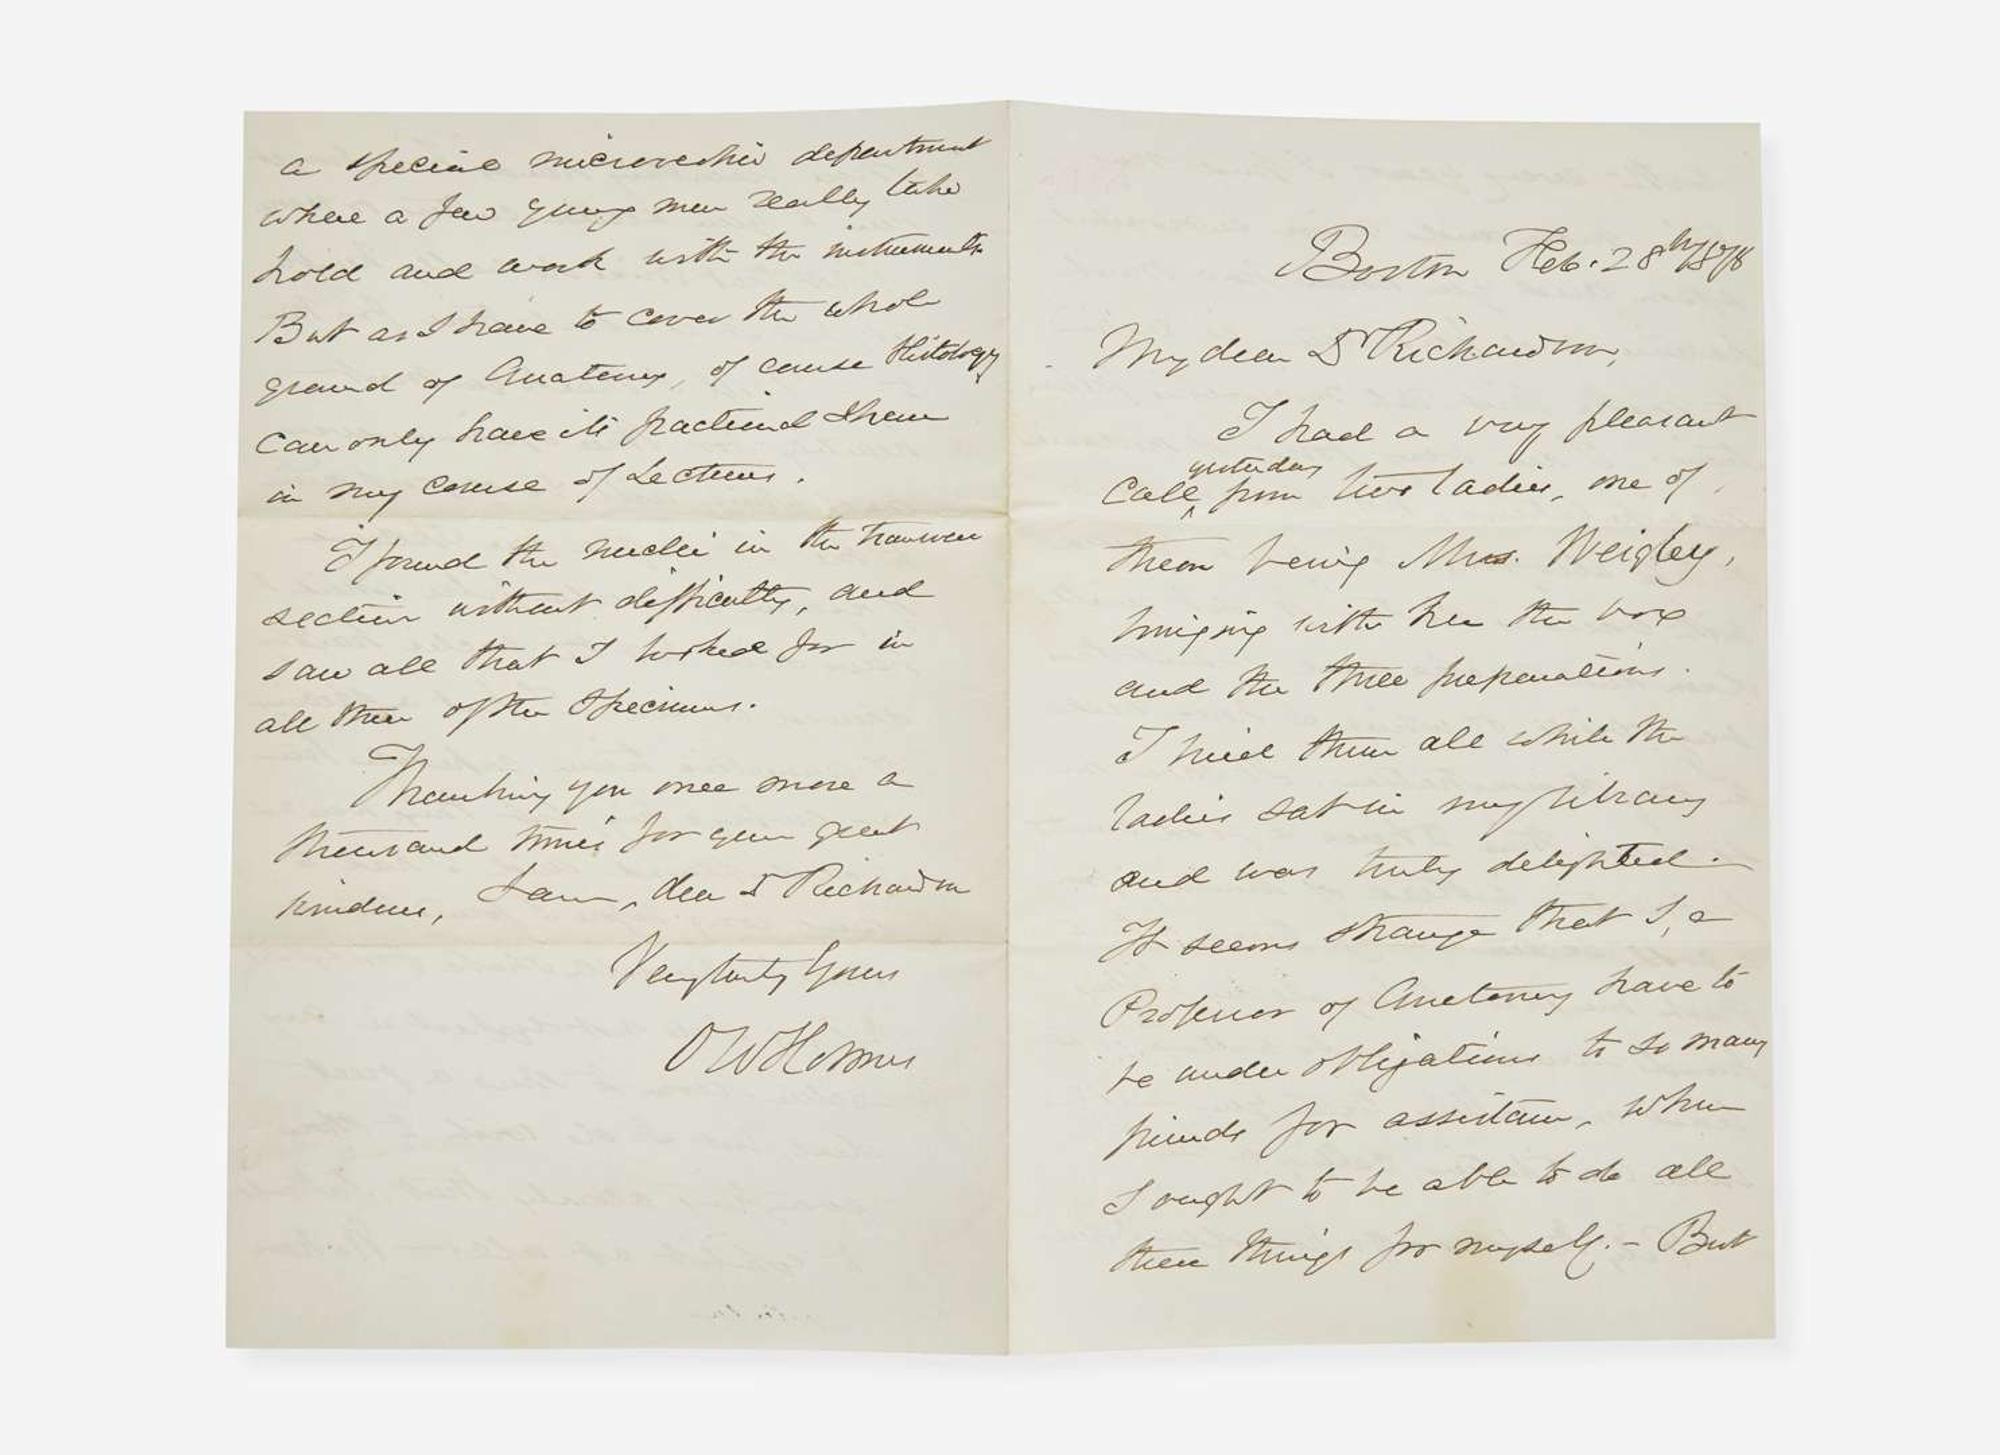 Boston Feb. 28th 1878
My dear Dr Richardson,
I had a very pleasant
yesterday
call from two ladies, one of
them being Mrs. Weigley,
bringing with her the box
and the three preparations.
I tried them all while the
ladies sat in my library
and was truly delighted.
It seems strange that I, a
Professor of Anatomy have to
be under obligations to so many
friends for assistance, when
I ought to be able to do all
these things for myself. - But
a special microscopic department
where a few young men really take
hold and work with the instruments.
But as I have to cover the whole
ground of Anatomy, of course Histology
can only have its fractional share
in my course of Lectures.
I found the nuclei in the transverse
section without difficulty, and
saw all that I looked for in
all three of the specimens.
Thanking you once more a
thousand times for your great
kindness, I am, dear Dr Richardson
Very truly Yours
O W Holmes